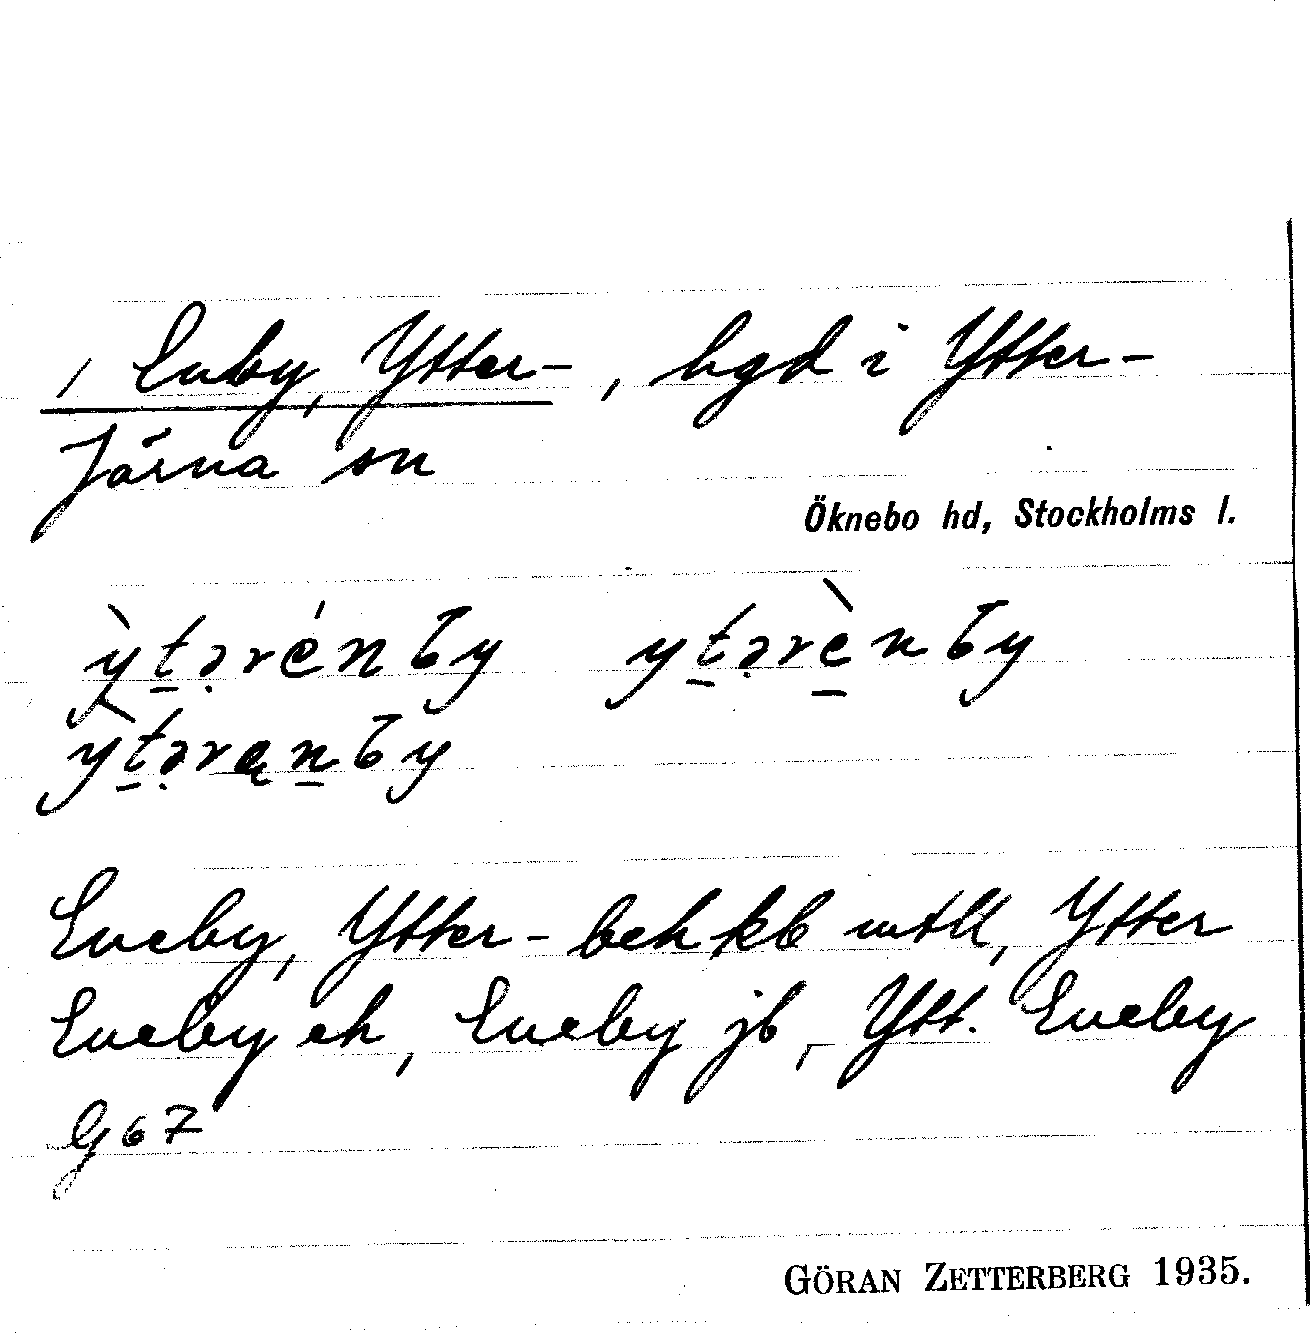 / Enby, Ytter-, bgd i Ytter-
Järna sn
Öknebo hd, Stockholms l.
ỳtərénby ytərènby
ỳtəręnby
Eneby, Ytter- beh kb mtll, Ytter
Eneby eh, Eneby jb, Ytt. Eneby
G 67
GÖRAN ZETTERBERG 1935.